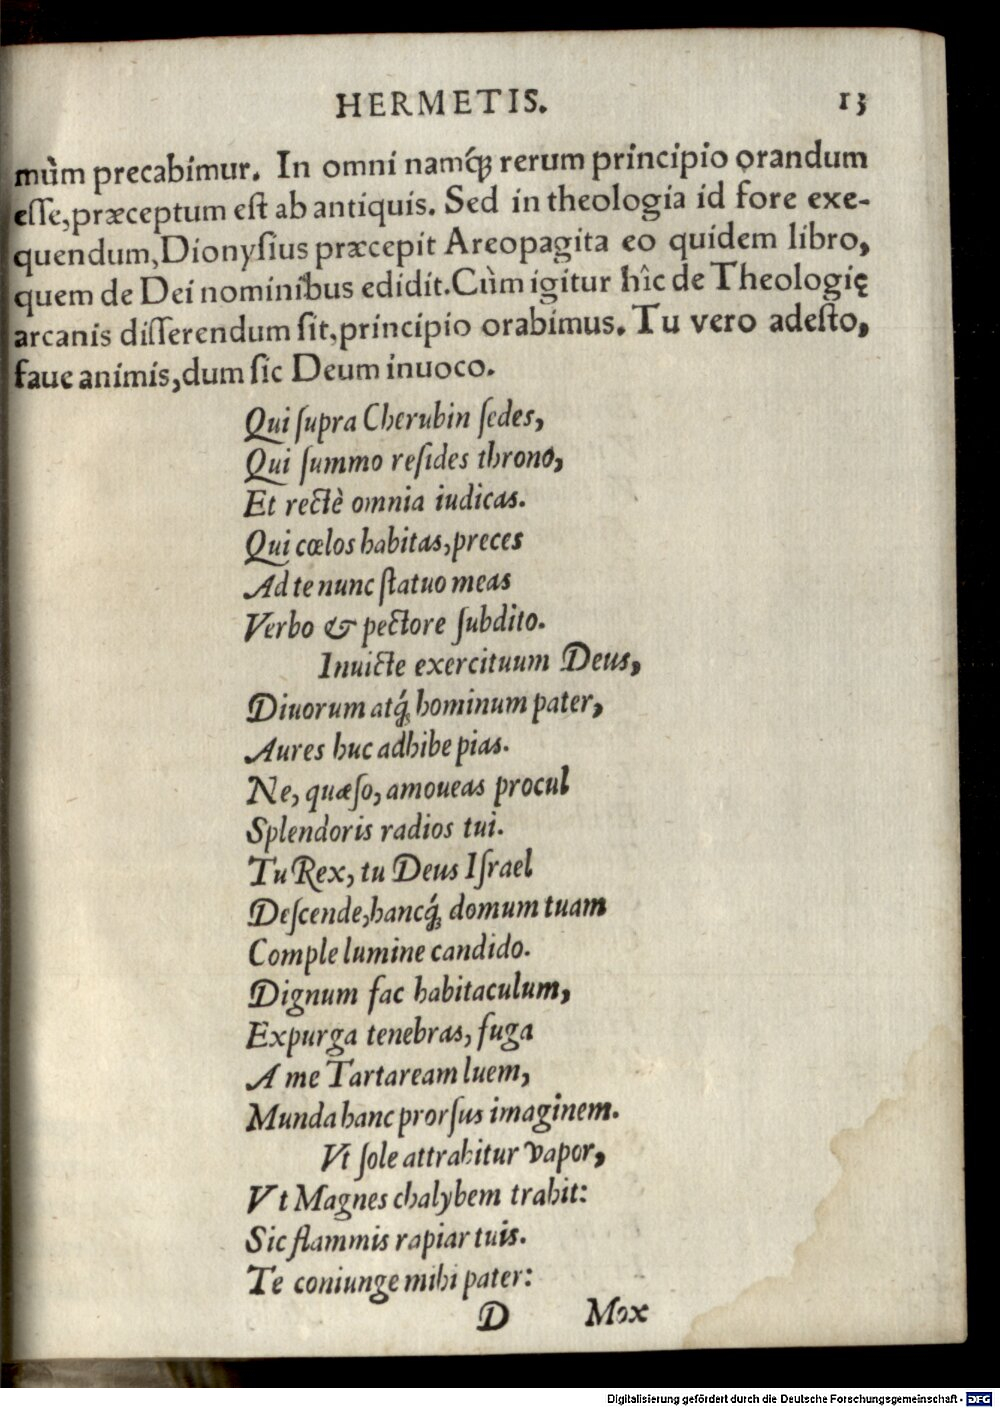 HERMETIS. 13
mùm precabimur. In omni namq́ꝫ rerum principio orandum
eſſe, præceptum eſt ab antiquis. Sed in theologia id fore exe-
quendum, Dionyſius præcepit Areopagita eo quidem libro,
quem de Dei nominibus edidit. Cùm igitur hîc de Theologię
arcanis diſſerendum ſit, principio orabimus. Tu vero adeſto,
faue animis, dum ſic Deum inuoco.
Qui ſupra Cherubin ſedes,
Qui ſummo reſides throno,
Et rectè omnia iudicas.
Qui cœlos habitas, preces
Ad te nunc ſtatuo meas
Verbo & pectore ſubdito.
Inuicte exercituum Deus,
Diuorum atq́ꝫ hominum pater,
Aures huc adhibe pias.
Ne, quæſo, amoueas procul
Splendoris radios tui.
Tu Rex, tu Deus Iſrael
Deſcende, hancq́ꝫ domum tuam
Comple lumine candido.
Dignum fac habitaculum,
Expurga tenebras, fuga
A me Tartaream luem,
Munda hanc prorſus imaginem.
Vt ſole attrahitur vapor,
Vt Magnes chalybem trahit:
Sic flammis rapiar tuis.
Te coniunge mihi pater:
D Mox
Digitalisierung gefördert durch die Deutsche Forschungsgemeinschaft - DFG